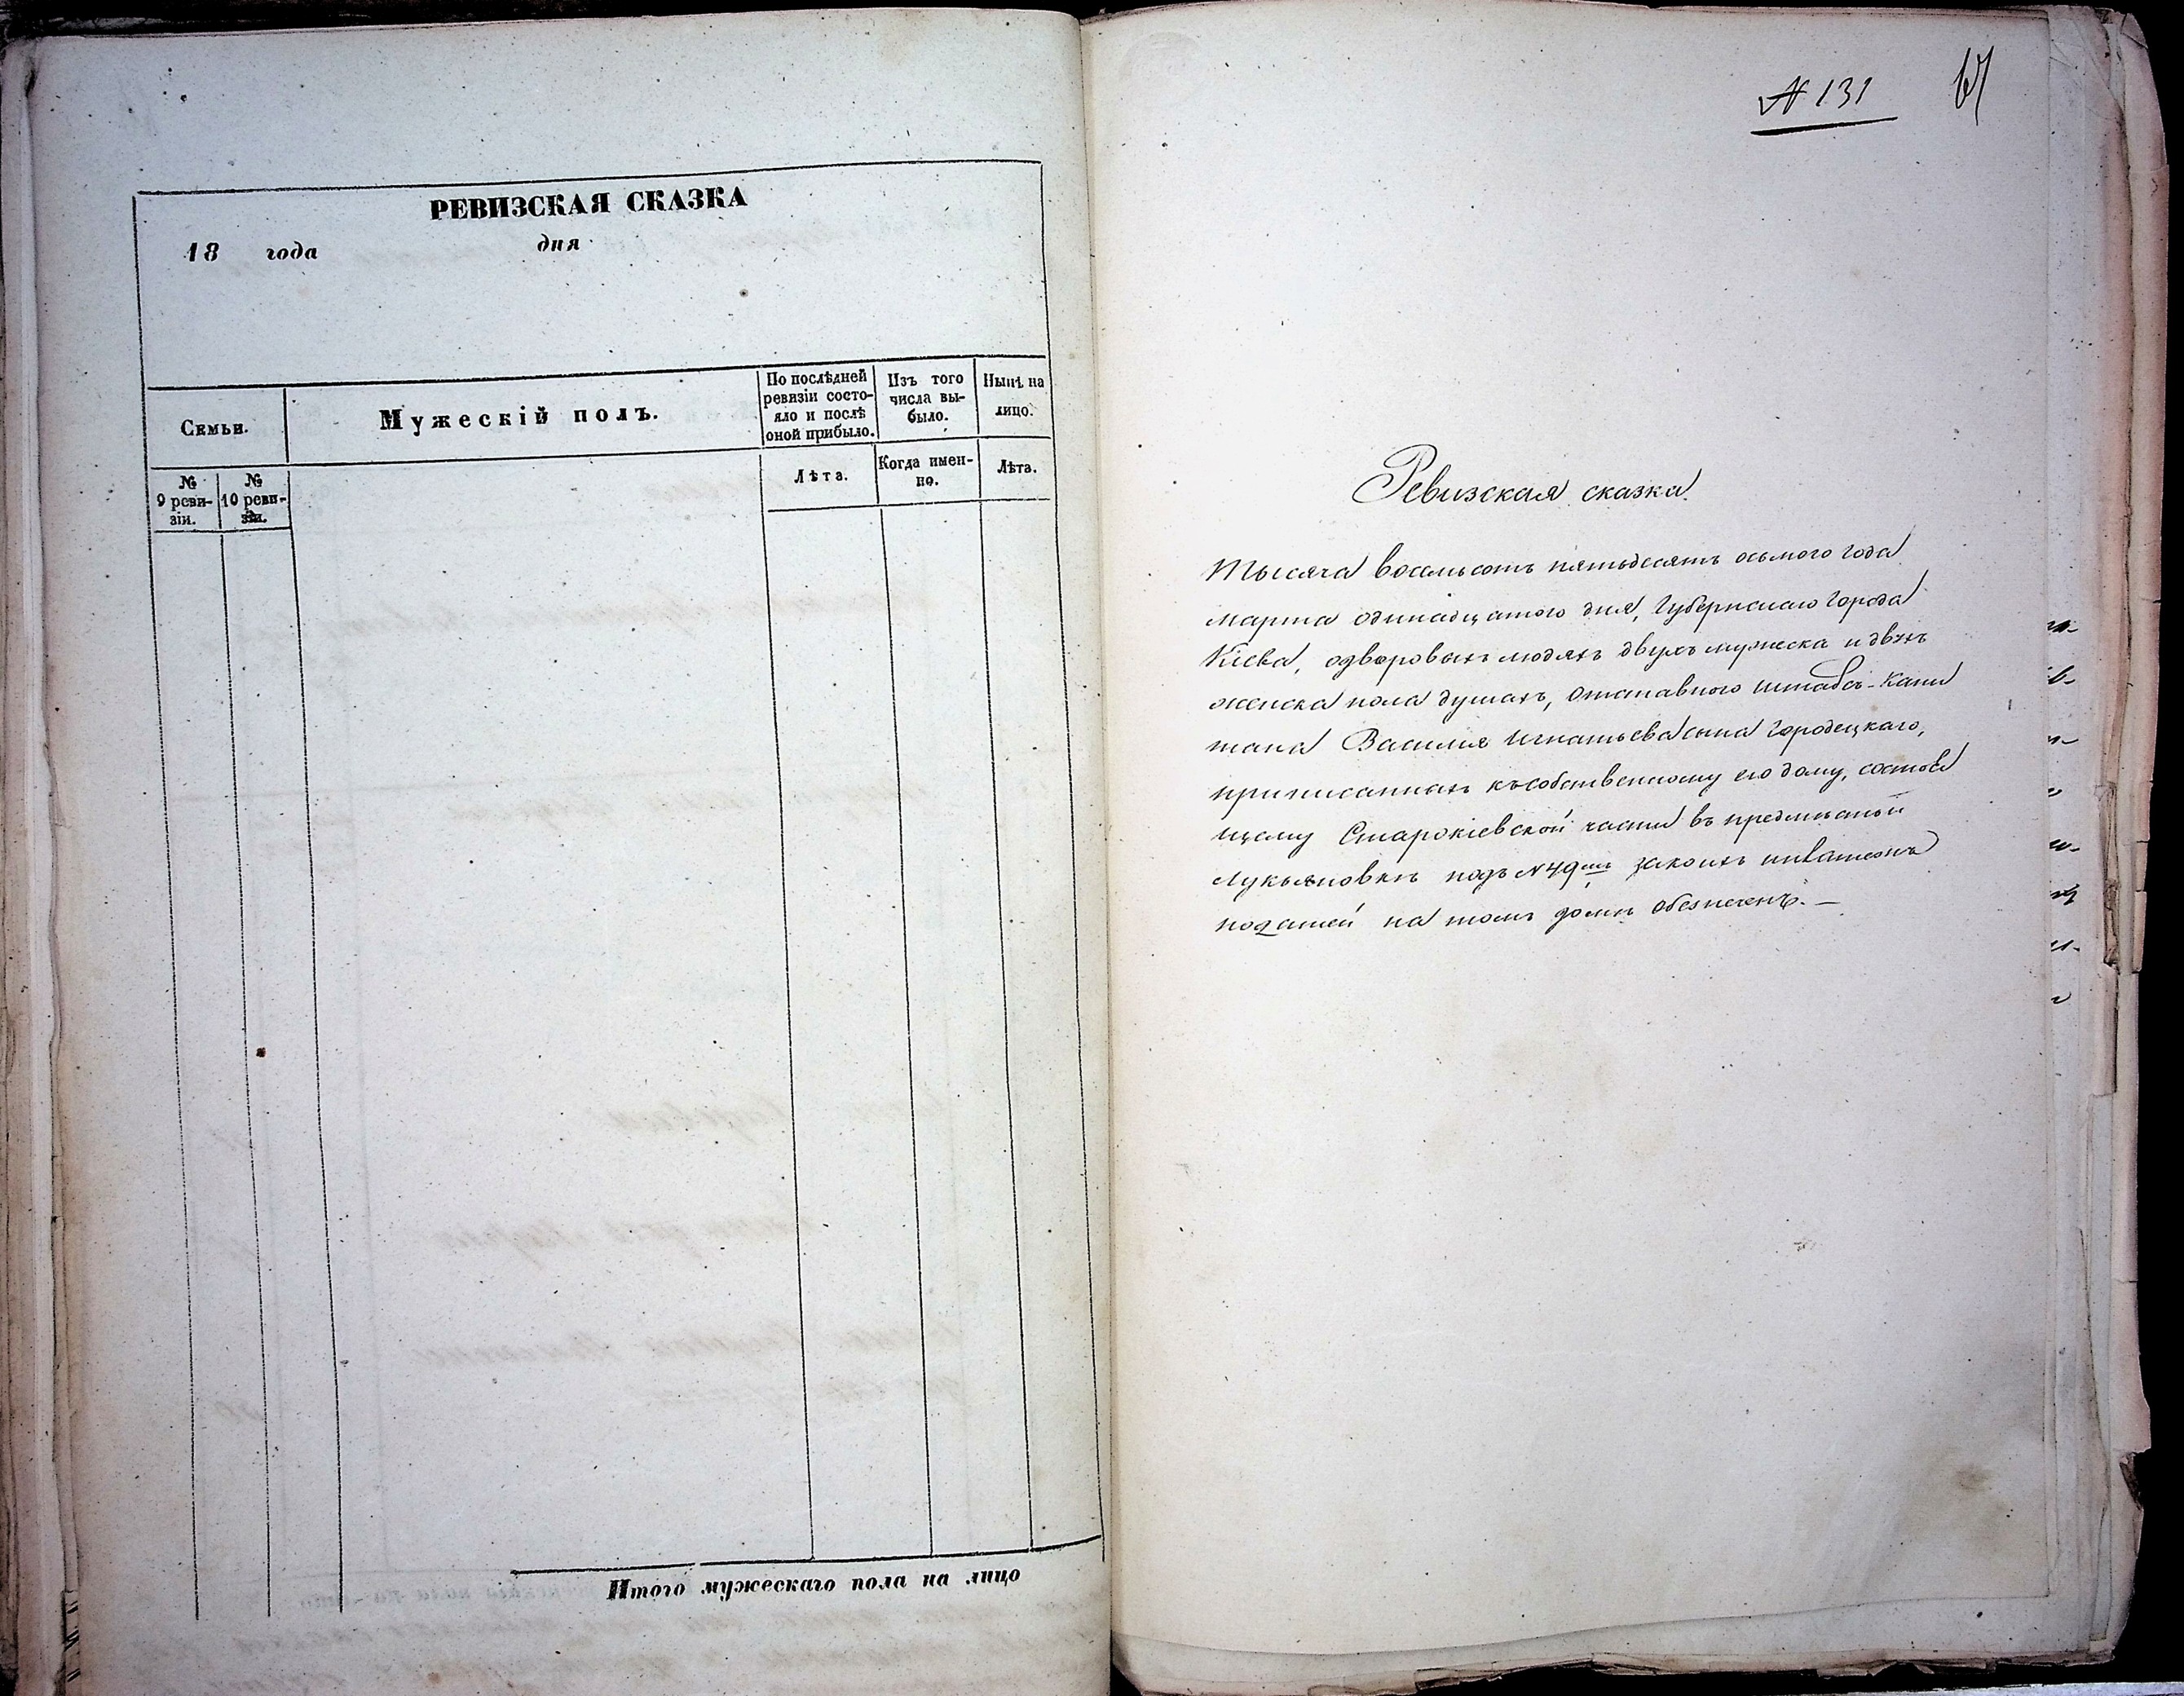 РЕВИЗСКАЯ СКАЗКА
18 года дня
Семьи.
Мужескій полъ.
По послѣдней ревизіи состо-
яло и послѣ оной прибыло.
Изъ того числа вы-
было.
Нынѣ на лицо.
№ 9 реви-
зіи.
№ 10 реви-
зіи.
Лѣта.
Когда имен-
но.
Лѣта.
Итого мужескаго пола на лицо
№ 131
Ревизская сказка.
Тысяча восемьсотъ пятьдесятъ осьмого года
марта одинадцатого дня, Губернскаго Города
Кіева, одворовыхъ людяхъ двухъ мужеска и двухъ
женска пола душахъ, отставного Штабсъ-Капи
тана Василія Игнатьева сына Городецкаго,
приписанныхъ къ собственному его дому, состоя
щему Старокіевской части въ предмѣстьи
Лукьяновкѣ подъ № 49мъ
податей на томъ домѣ обезпеченъ. —